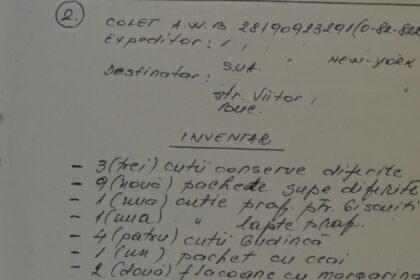 2. COLET A.W.B. 28190923291(0-82-822
Expeditor: , ,
S.U.A. NEW-YORK
Destinatar:
str. Viitor,
Buc.
INVENTAR
- 3(trei) cutii conserve diferite
- 9(nouă) pachete supe diferite
- 1(una) cutie praf ptr. biscuiti
- 1(una) " lapte praf.
- 4(patru) cutii budincă
- 1(un) pachet cu ceai
- 2(două) flacoane cu margarina